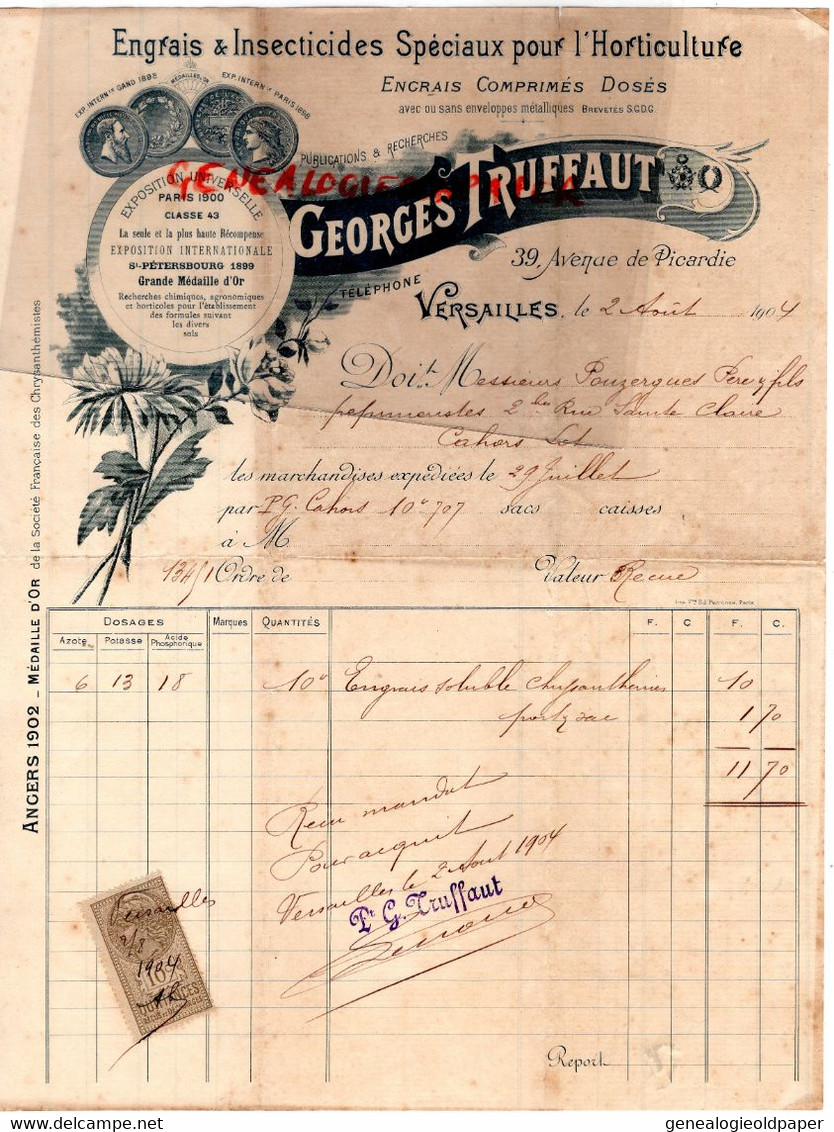 Engrais & Insecticides Spéciaux pour l'Horticulture
ENGRAIS COMPRIMÉS DOSÉS
avec ou sans enveloppes métalliques BREVETÉS S.G.D.G.
EXP. INTERN.le GAND 1898
MÉDAILLES D'OR
EXP. INTERN.le PARIS 1898
PUBLICATIONS & RECHERCHES
GENEALOGIE
GEORGES TRUFFAUT
EXPOSITION UNIVERSELLE
PARIS 1900
CLASSE 43
La seule et la plus haute Récompense
EXPOSITION INTERNATIONALE
St-PÉTERSBOURG 1899
Grande Médaille d'Or
Recherches chimiques, agronomiques
et horticoles pour l'établissement
des formules suivant
les divers
sols
39, Avenue de Picardie
TÉLÉPHONE
VERSAILLES, le 2 Août 1904
Doit Messieurs Pouzergues Père & fils
pépiniéristes 2 bis Rue Sainte Claire
Cahors Lot
les marchandises expédiées le 29 Juillet
par P.G. Cahors 10k 707 sacs caisses
à M
134/1 Ordre de Valeur Reçue
ANGERS 1902 - MÉDAILLE D'OR de la Société Française des Chrysanthémistes
DOSAGES Marques QUANTITÉS F. C F. C.
Azote Potasse Acide Phosphorique
6 13 18 10k Engrais soluble chrysanthèmes 10
port & sac 1 70
11 70
Reçu mandat
Pour acquit
Versailles le 2 Août 1904
Pr G. Truffaut
Versailles
2/8
1904
10c
QUITTANCES
Report
genealogieoldpaper